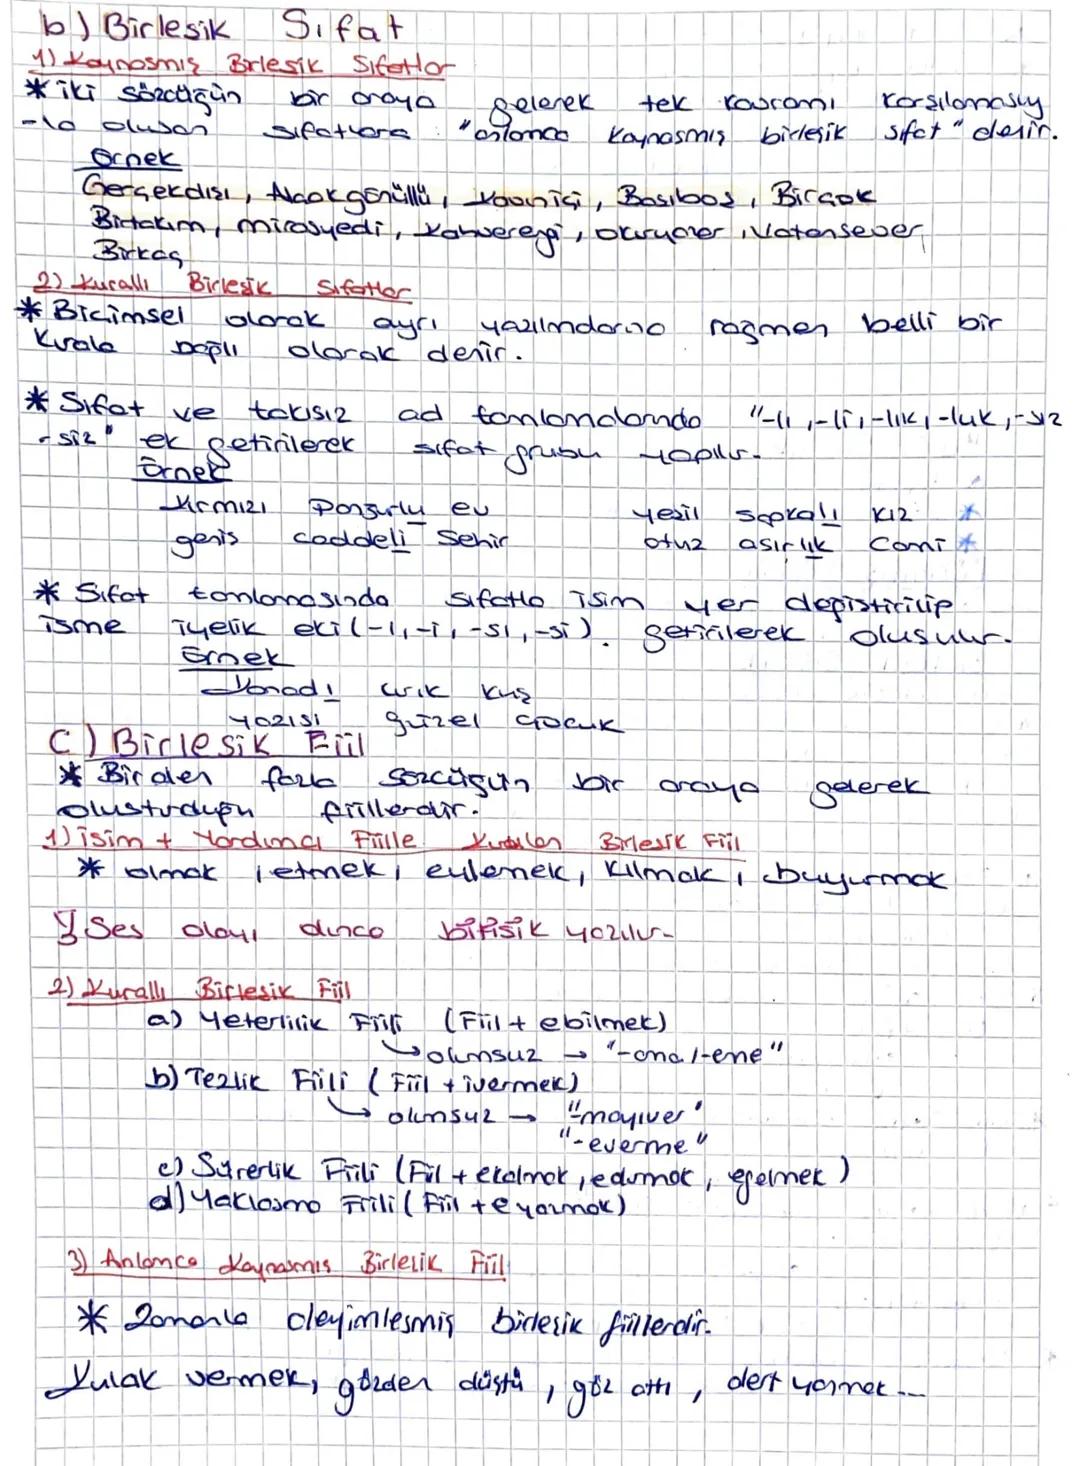 b) Birlesik Sıfat
1) Kaynasmış Birlesik Sıfatlar
* iki sözcüğün bir araya gelerek tek kavramı karsılamasıy
-la olusan sıfatlara "anlamca kaynasmış birleşik sıfat" denir.
Örnek
Gerçekdısı, Alcakgönüllü, Kavniçi, Basıbos, Birçok
Birtakım, mirasyedi, Kahverengi, okuryazar, Vatansever
Birkaç
2) Kurallı Birlesik Sıfatlar
* Bicimsel olarak ayrı yazılmalarına rağmen belli bir
kurala bağlı olarak denir.
* Sıfat ve takısız ad tamlamalarında "-lı, -li, -lık, -luk, -sız
-siz" ek getirilerek sıfat grubu yapılır.
Örnek
Kırmızı Panjurlu ev yesil sapkalı kız *
genis caddeli sehir otuz asırlık Cami *
* Sıfat tamlamasında sıfatla isim yer değistirilip
isme iyelik eki (-ı, -i, -sı, -si) getirilerek olusulur.
Örnek
Kanadı kırık kuş
yazısı güzel çocuk
C) Birlesik Fiil
* Birden fazla sözcüğün bir araya gelerek
olusturduğu fiillerdir.
1) isim + Yardımcı Fiille Kurulan Birlesik Fiil
* olmak, etmek, eylemek, kılmak, buyurmak
Ses olayı olunca bitisik yazılır.
2) Kurallı Birlesik Fiil
a) Yeterlilik Fiili (Fiil + ebilmek)
olumsuz → "-ama/-eme"
b) Tezlik Fiili (Fiil + ivermek)
olumsuz → "-mayıver"
"-everme"
c) Sürerlik Fiili (Fiil + ekalmak, edurmak, egelmek)
d) Yaklasma Fiili (Fiil + eyazmak)
3) Anlamca Kaynasmıs Birlesik Fiil
* Zamanla deyimlesmiş birlesik fiillerdir.
Kulak vermek, gözden düştü, göz attı, dert yanmak ...